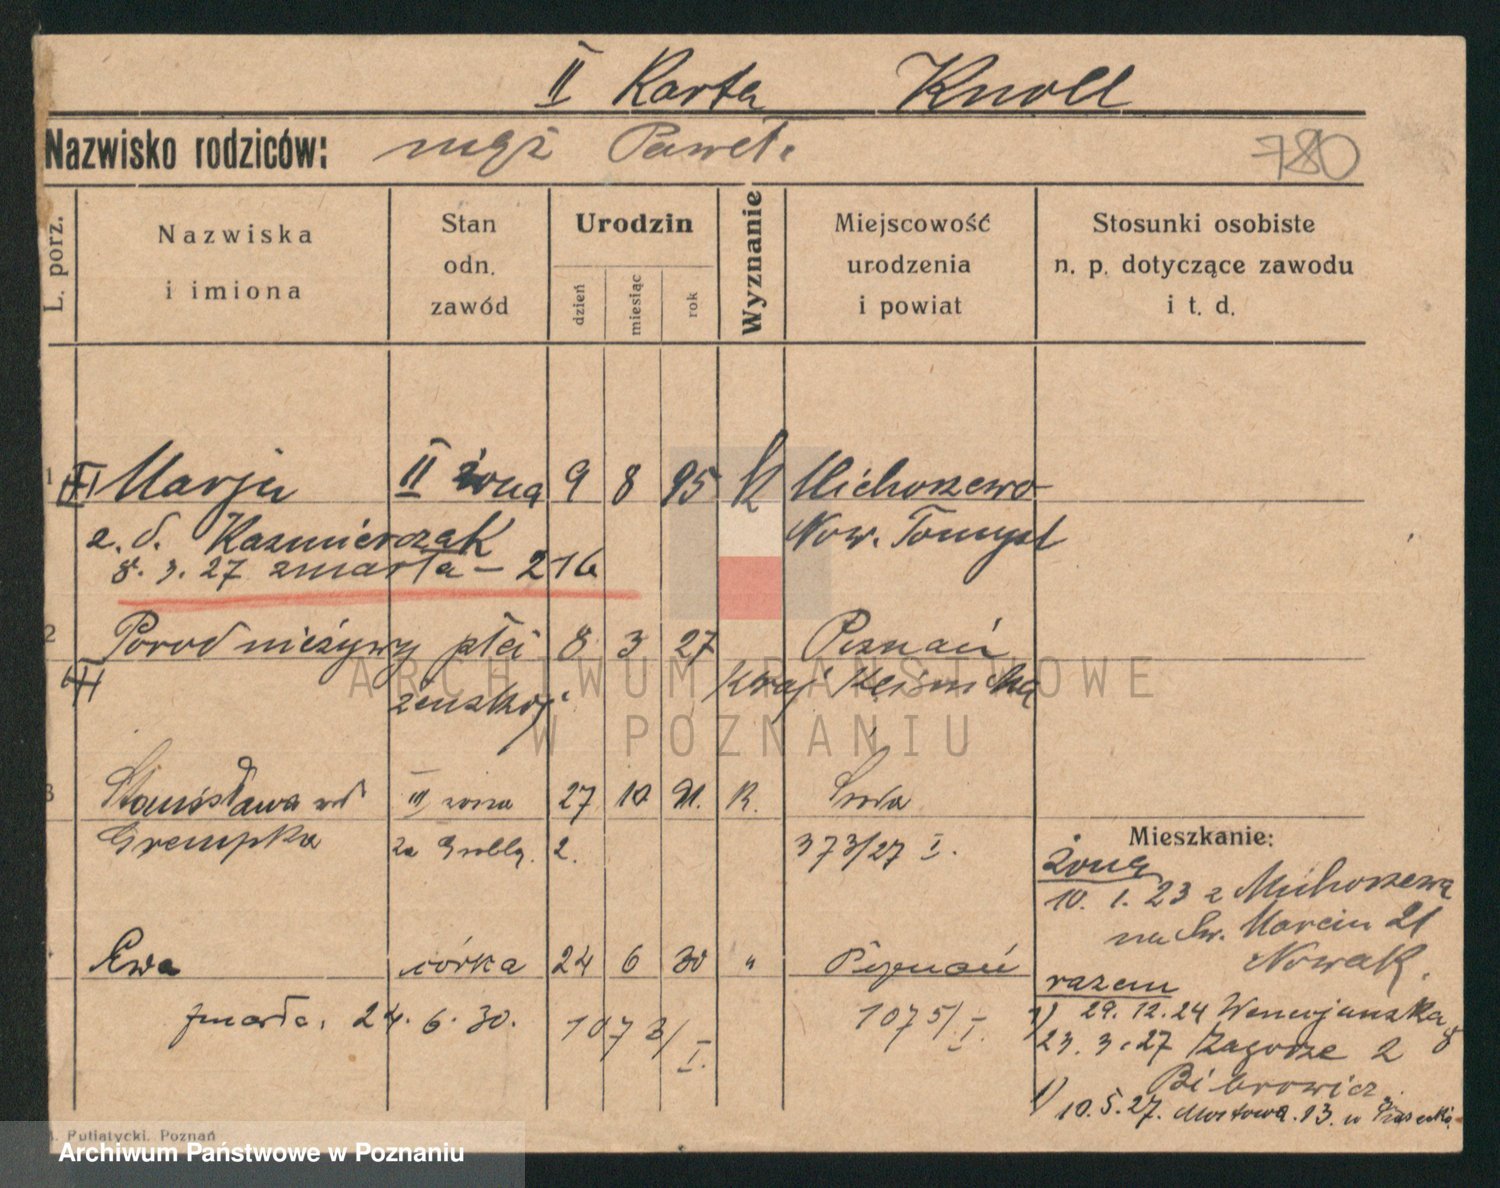 II Karta Knoll
Nazwisko rodziców: mąż Paweł.
780
L. porz.
Nazwiska i imiona
Stan odn. zawód
Urodzin
dzień
miesiąc
rok
Wyznanie
Miejscowość urodzenia i powiat
Stosunki osobiste n. p. dotyczące zawodu i t. d.
1 Marja II żona 9 8 95 k Michorzewo
z. d. Kazmierczak Now. Tomyśl
8. 3. 27 zmarła – 216
2 Poród nieżywy płci 8 3 27 Poznań
żeńskiej
3 Stanisława III żona 27 10 91. R. Środa
Grempka za Grobla. 2. 373/27 I.
Mieszkanie:
żona
10. 1. 23 z Michorzewa
na Św. Marcin 21
Nowak.
Ewa córka 24 6 30 " Poznań
zmarła. 24. 6. 30. 1073/I. 1075/I.
razem
1) 29. 12. 24 Wenecjańska 8
23. 3. 27 Zagórze 2
Bibrowicz.
1) 10. 5. 27. Mostowa. 13.
ARCHIWUM PAŃSTWOWE
W POZNANIU
Putiatycki. Poznań
Archiwum Państwowe w Poznaniu